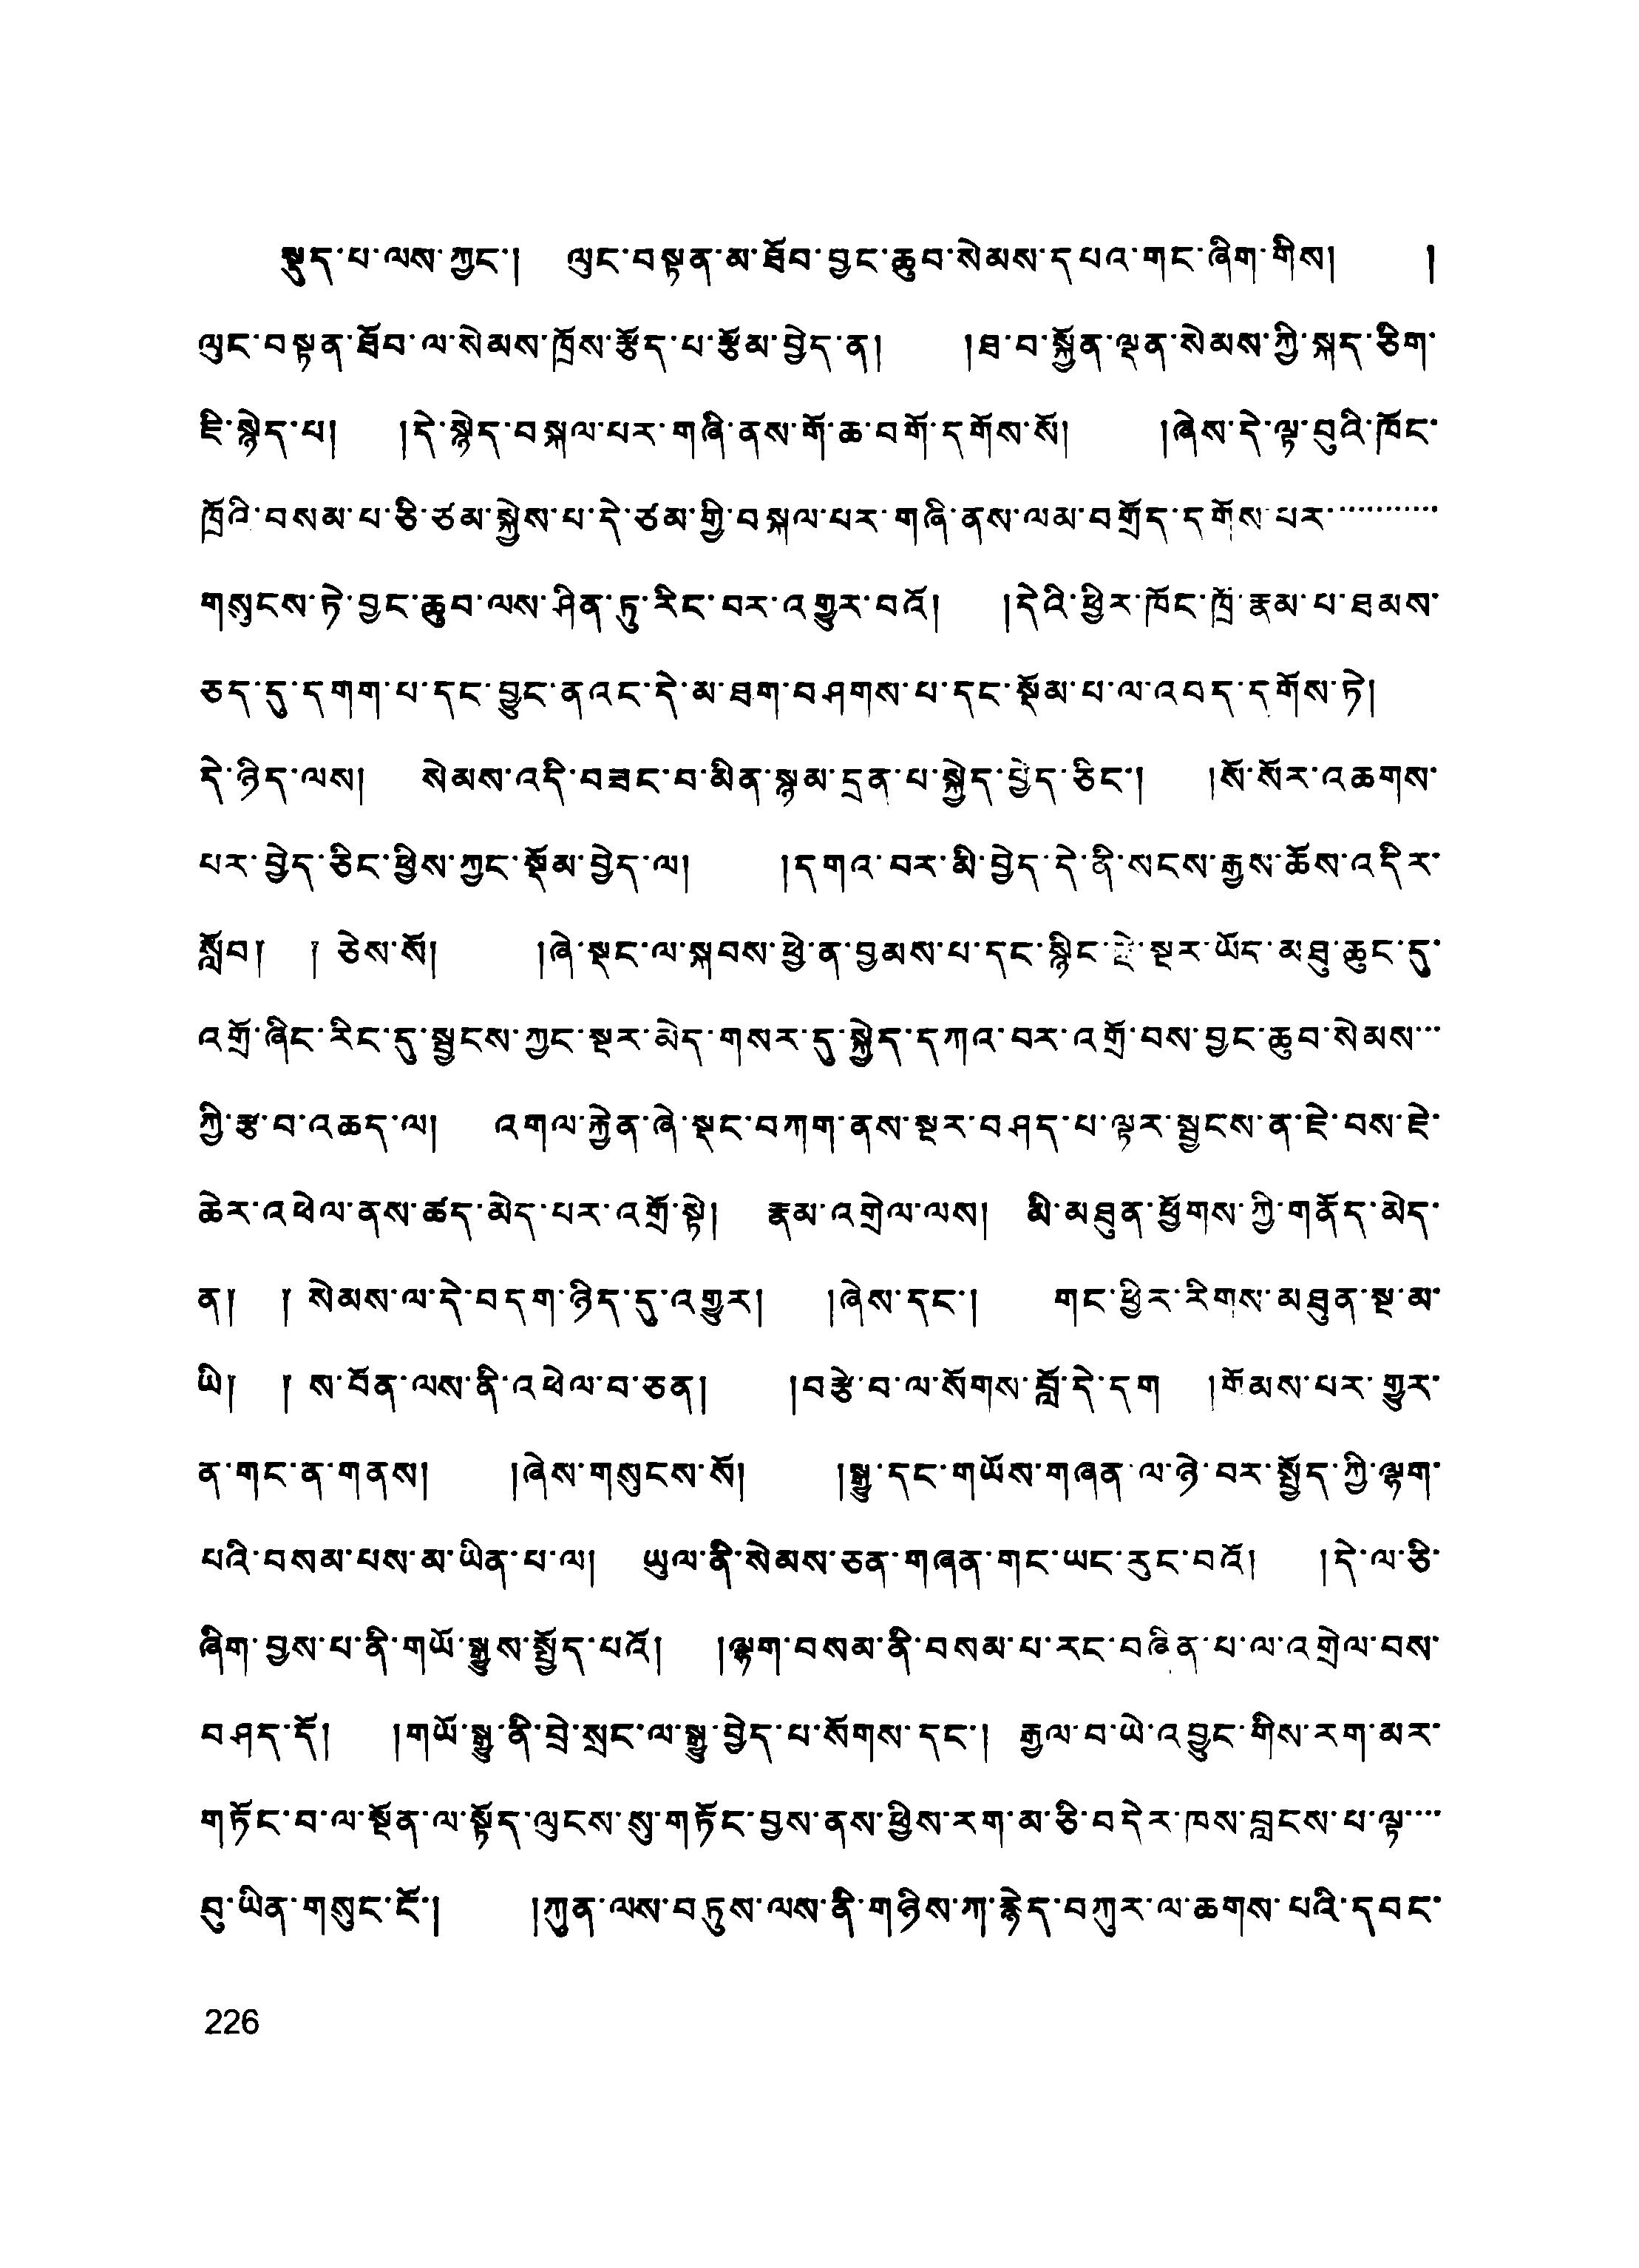 སྡུད་པ་ལས་ཀྱང་། ལུང་བསྟན་མ་ཐོབ་བྱང་ཆུབ་སེམས་དཔའ་གང་ཞིག་གིས། །
ལུང་བསྟན་ཐོབ་ལ་སེམས་ཁྲོས་རྩོད་པ་རྩོམ་བྱེད་ན། །ཐ་བ་སྐྱོན་ལྡན་སེམས་ཀྱི་སྐད་ཅིག་
ཇི་སྙེད་པ། །དེ་སྙེད་བསྐལ་པར་གཞི་ནས་གོ་ཆ་བགོ་དགོས་སོ། །ཞེས་དེ་ལྟ་བུའི་ཁོང་
ཁྲོའི་བསམ་པ་ཅི་ཙམ་སྐྱེས་པ་དེ་ཙམ་གྱི་བསྐལ་པར་གཞི་ནས་ལམ་བགྲོད་དགོས་པར་…………
གསུངས་ཏེ་བྱང་ཆུབ་ལས་ཤིན་ཏུ་རིང་བར་འགྱུར་བའོ། །དེའི་ཕྱིར་ཁོང་ཁྲོ་རྣམ་པ་ཐམས་
ཅད་དུ་དགག་པ་དང་བྱུང་ནའང་དེ་མ་ཐག་བཤགས་པ་དང་སྡོམ་པ་ལ་འབད་དགོས་ཏེ།
དེ་ཉིད་ལས། སེམས་འདི་བཟང་བ་མིན་སྙམ་དྲན་པ་སྐྱེད་བྱེད་ཅིང་། །སོ་སོར་འཆགས་
པར་བྱེད་ཅིང་ཕྱིས་ཀྱང་སྡོམ་བྱེད་ལ། །དགའ་བར་མི་བྱེད་དེ་ནི་སངས་རྒྱས་ཆོས་འདིར་
སློབ། ། ཅེས་སོ། །ཞེ་སྡང་ལ་སྐབས་ཕྱེ་ན་བྱམས་པ་དང་སྙིང་རྗེ་སྔར་ཡོད་མཐུ་ཆུང་དུ་
འགྲོ་ཞིང་རིང་དུ་སྦྱངས་ཀྱང་སྔར་མེད་གསར་དུ་སྐྱེད་དཀའ་བར་འགྲོ་བས་བྱང་ཆུབ་སེམས…
ཀྱི་རྩ་བ་འཆད་ལ། འགལ་རྐྱེན་ཞེ་སྡང་བཀག་ནས་སྔར་བཤད་པ་ལྟར་སྦྱངས་ན་ཇེ་བས་ཇེ་
ཆེར་འཕེལ་ནས་ཚད་མེད་པར་འགྲོ་སྟེ། རྣམ་འགྲེལ་ལས། མི་མཐུན་ཕྱོགས་ཀྱི་གནོད་མེད་
ན། ། སེམས་ལ་དེ་བདག་ཉིད་དུ་འགྱུར། །ཞེས་དང་། གང་ཕྱིར་རིགས་མཐུན་སྔ་མ་
ཡི། ། ས་བོན་ལས་ནི་འཕེལ་བ་ཅན། །བརྩེ་བ་ལ་སོགས་བློ་དེ་དག །གོམས་པར་གྱུར་
ན་གང་ན་གནས། །ཞེས་གསུངས་སོ། །སྒྱུ་དང་གཡོས་གཞན་ལ་ཉེ་བར་སྤྱོད་ཀྱི་ལྷག་
པའི་བསམ་པས་མ་ཡིན་པ་ལ། ཡུལ་ནི་སེམས་ཅན་གཞན་གང་ཡང་རུང་བའོ། །དེ་ལ་ཅི་
ཞིག་བྱས་པ་ནི་གཡོ་སྒྱུས་སྤྱོད་པའོ། །ལྷག་བསམ་ནི་བསམ་པ་རང་བཞིན་པ་ལ་འགྲེལ་བས་
བཤད་དོ། །གཡོ་སྒྱུ་ནི་བྲེ་སྲང་ལ་སྒྱུ་བྱེད་པ་སོགས་དང་། རྒྱལ་བ་ཡེ་འབྱུང་གིས་རག་མར་
གཏོང་བ་ལ་སྔོན་ལ་སྟོད་ལུངས་སུ་གཏོང་བྱས་ནས་ཕྱིས་རག་མ་ཅི་བདེར་ཁས་བླངས་པ་ལྟ་…
བུ་ཡིན་གསུང་ངོ་། །ཀུན་ལས་བཏུས་ལས་ནི་གཉིས་ཀ་རྙེད་བཀུར་ལ་ཆགས་པའི་དབང་
226